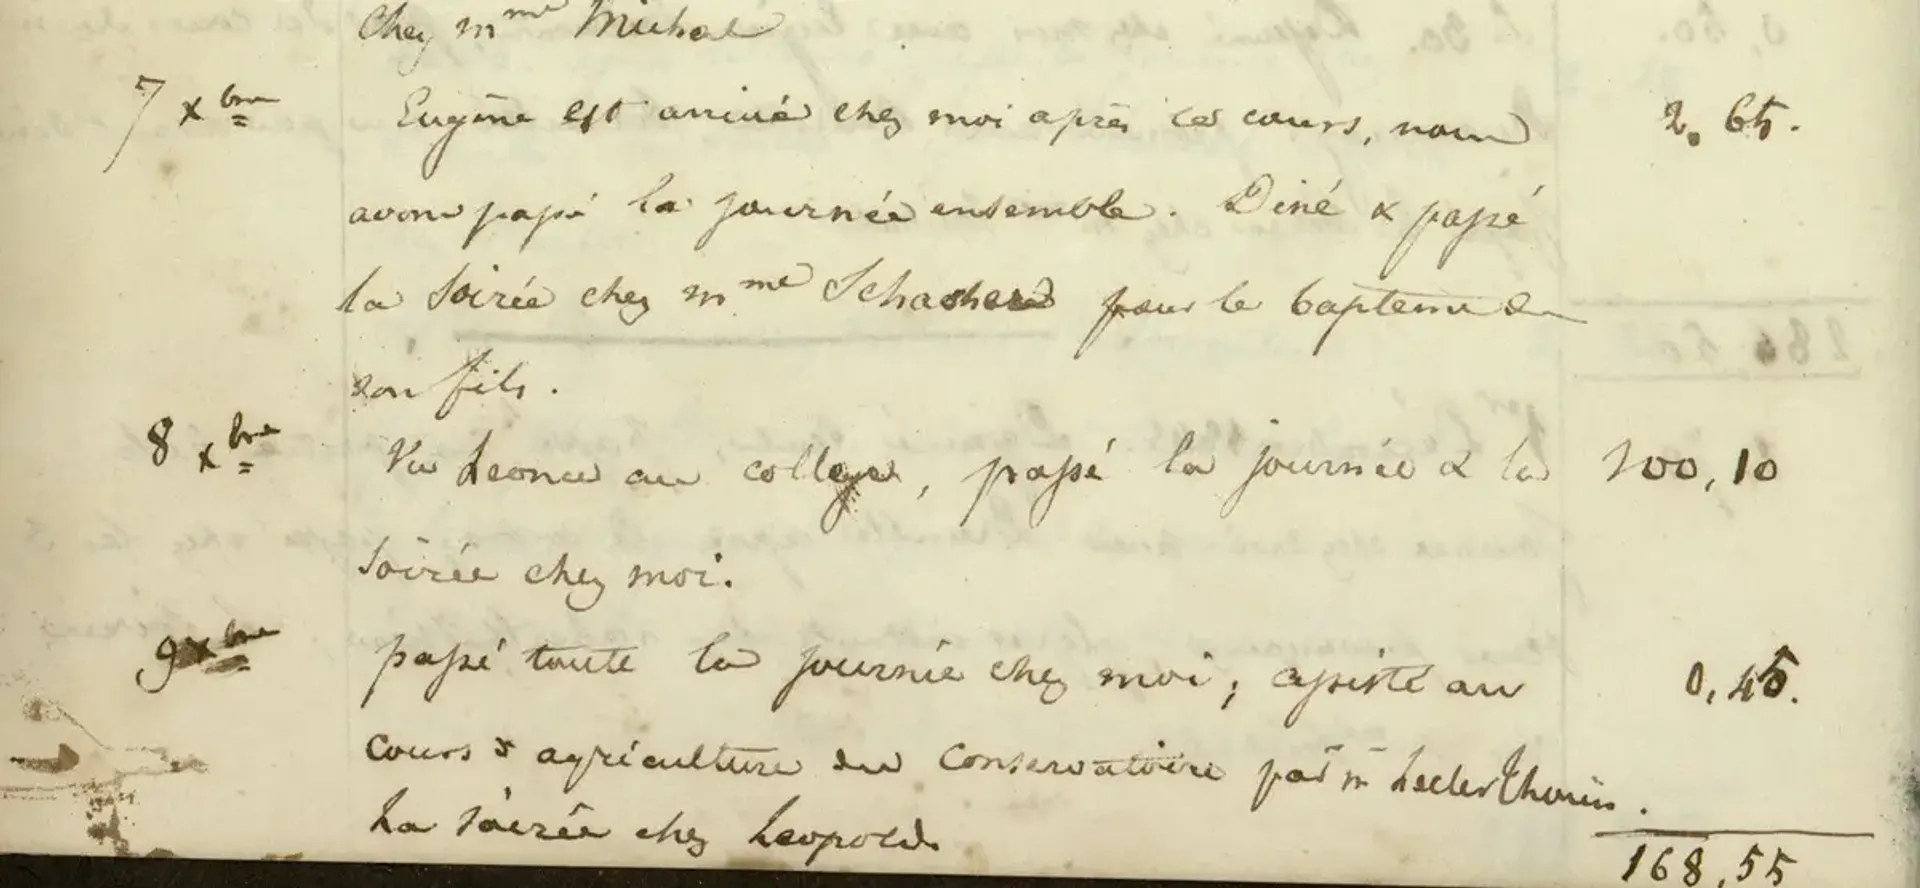 chez mme Michel
7 xbre Eugène est arrivé chez moi après les cours, nous 2.65.
avons passé la journée ensemble. Diné & passé
la soirée chez mme pour le bapteme de
son fils.
8 xbre Vu Leonce au college, passé la journée & la 100,10
soirée chez moi.
9 xbre passé toute la journée chez moi; assisté au 0,45.
cours d'agriculture du conservatoire par mr Leclerc Thouin.
La soirée chez Leopold.
168,55